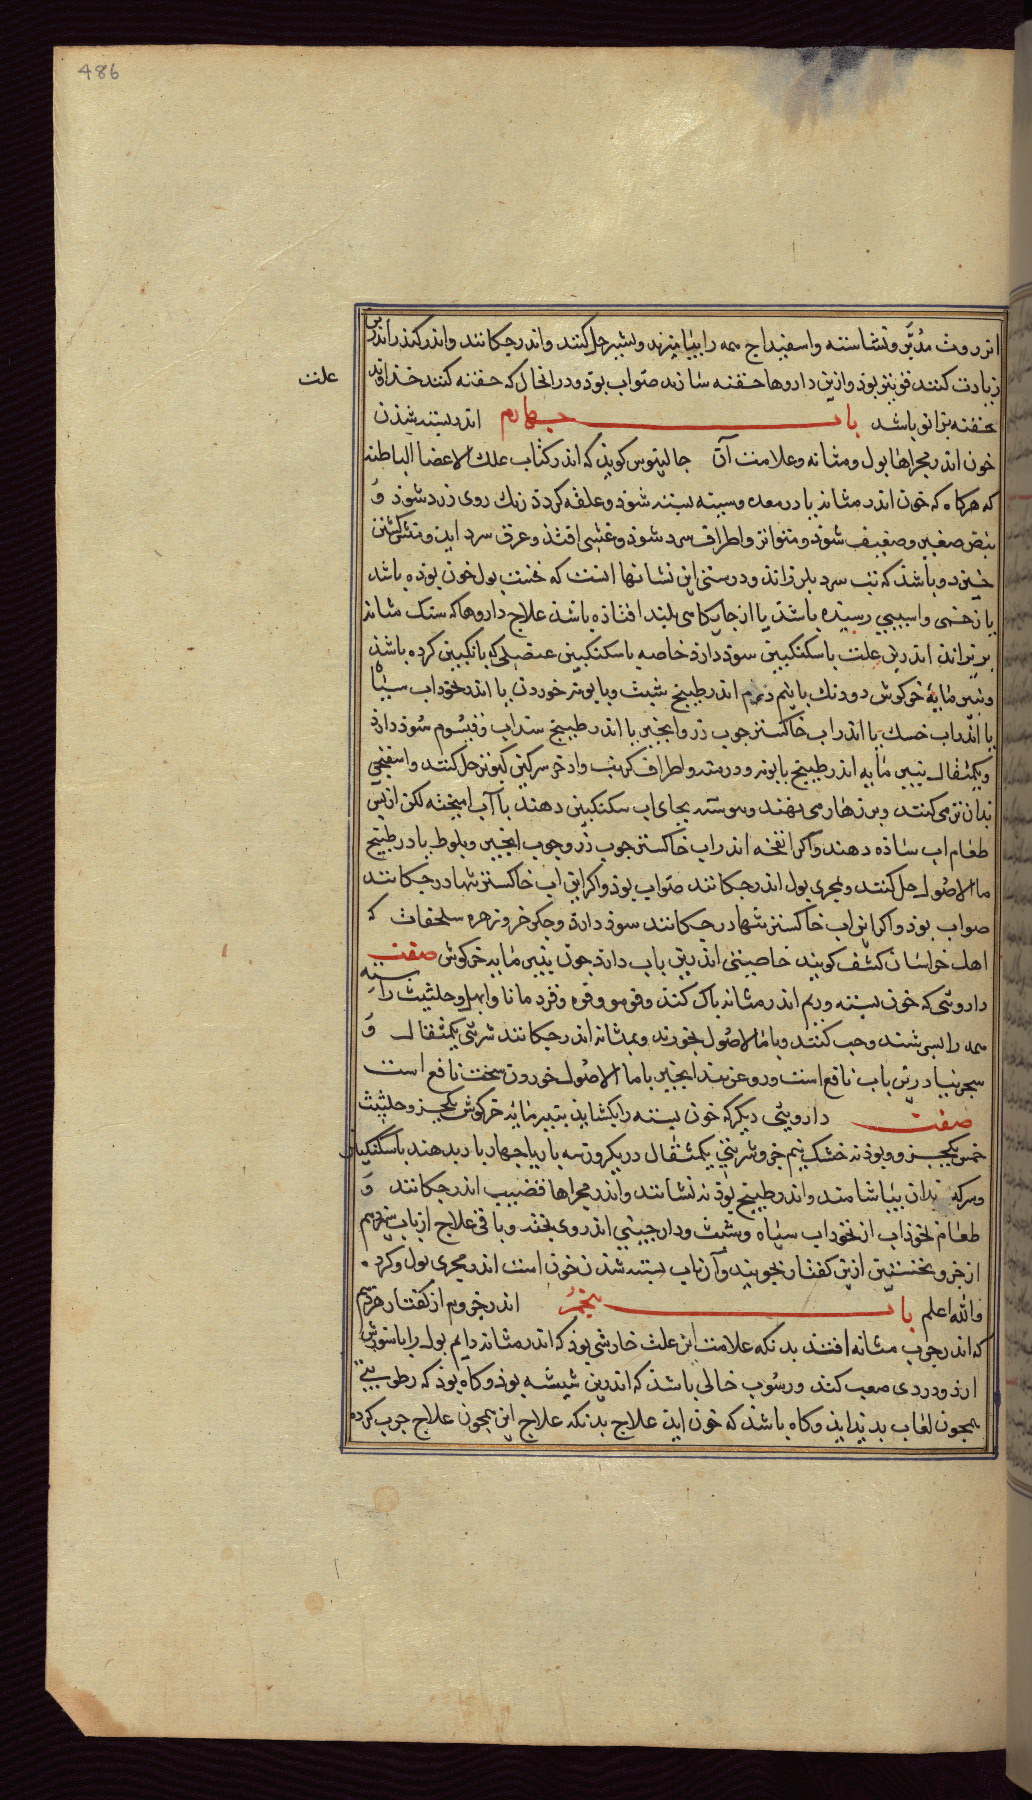 486
انزروت مدبر و نشاسته و اسفیداج همه را بیامیزند و بشیر حل کنند و اندر چکانند و اندر کندر اندرین
زیادت کنند قویتر بوذ و ازین داروها حقنه سازند صواب بوذ و در انحال که حقنه کنند خذاوند
علت
بحقنه بزانو باشد باب چهارم اندر بسته شذن
خون اندر مجراها بول و مثانه و علامت آن جالینوس کویذ که اندر کتاب علل الاعضا الباطنه
که هرکاه که خون اندر مثانه یا در معده و سینه بسته شوذ و علقه کردذ رنک روی زرد شوذ و
نبض صغیر و ضعیف شوذ و متواتر و اطراف سرد شوذ و غشی افتذ و عرق سرد ایذ و منش کشتن
خیزد و باشذ که تب سرد بلرزانذ و درستی این نشانها انست که نخست بول خون بوذه باشد
یا زخمی و اسیبی رسیده باشذ یا از جایکاهی بلند افتاذه باشذ علاج داروها که سنک مثانه
بریزاند اندرین علت با سکنکبین سوذ دارذ خاصه با سکنکبین عنصلی که بانکبین کرده باشذ
و پنیر مایه خرکوش دو دنک یا نیم درم اندر طبیخ شبث و بابونه خوردن یا اندر نخوذاب سیاه
یا اندراب خسک یا اندر اب خاکستر جوب رز و انجیر یا اندر طبیخ سداب و قیسوم سوذ دارذ
و یکمثقال پنیر مایه اندر طبیخ بابونه و درمنه و اطراف کرنب و اذخر سرکین کبوتر حل کنند و اسفنجی
بدان تر می کنند و بر زهار می نهند و پیوسته بجای اب سکنکبین دهند با آب امیخته لکن از پس
طعام اب ساذه دهند و اکر انفخه اندر اب خاکستر جوب رز و جوب انجیر و بلوط یا در طبیخ
ما الاصول حل کنند و بمجری بول اندر چکانند صواب بوذ و اکر این اب خاکستر تنها در چکانند
صواب بوذ و اکر این اب خاکستر تنها در چکانند سوذ دارذ و جکر خر و زهره سلحفات که
اهل خراسان کشف کویند خاصیتی اندرین باب دارذ جون پنیر مایه خرکوش صفت
داروئی که خون بسته و ریم اندر مثانه پاک کنذ و فو مو و قوه و قردمانا و ابهل و حلتیت راسته
همه را بسرشند و حب کنند و با ما الاصول بخورند و بمثانه اندر چکانند شربتی یکمثقال و
سجرینیا درین باب نافع است و روغن بید انجیر با ما الاصول خوردن سخت نافع است
صفت داروئی دیکر که خون بسته را بکشایذ پنیر مایه خرکوش یکجزو حلتیت
خمس یکجزو و بوذنه خشک نیم جزو شربتی یکمثقال در یکروز سه بار یا چهار بار بدهند با سکنکبین
و سرکه بدان بیاشامند و اندر طبیخ بوذنه نشانند و اندر مجراها قضیب اندر چکانند و
طعام نخوذاب از نخوذاب سیاه و شبث و دارجینی اندر وی پخته و باقی علاج از باب سیزدهم
از جزو نخستین ازین کفتار بجویند و آن باب بسته شذن خون است اندر مجری بول و کرد.
والله اعلم باب پنجم اندر جزو دوم از کفتار هزدهم
که اندر جرب مثانه افتد بدنکه علامت این علت خارشی بوذ که اندر مثانه دایم بول را با سوزش
ارذ و دردی صعب کند و رسوب خالی باشذ که اندرین شیشه بوذ و کاه بوذ که رطوبتی
همچون لعاب بدید ایذ و کاه باشذ که خون ایذ علاج بدنکه علاج این همجون علاج جرب کرده